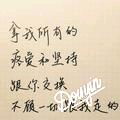 拿我所有的
疼爱和坚持
跟你交换
不顾一切跟我走的
Douyin